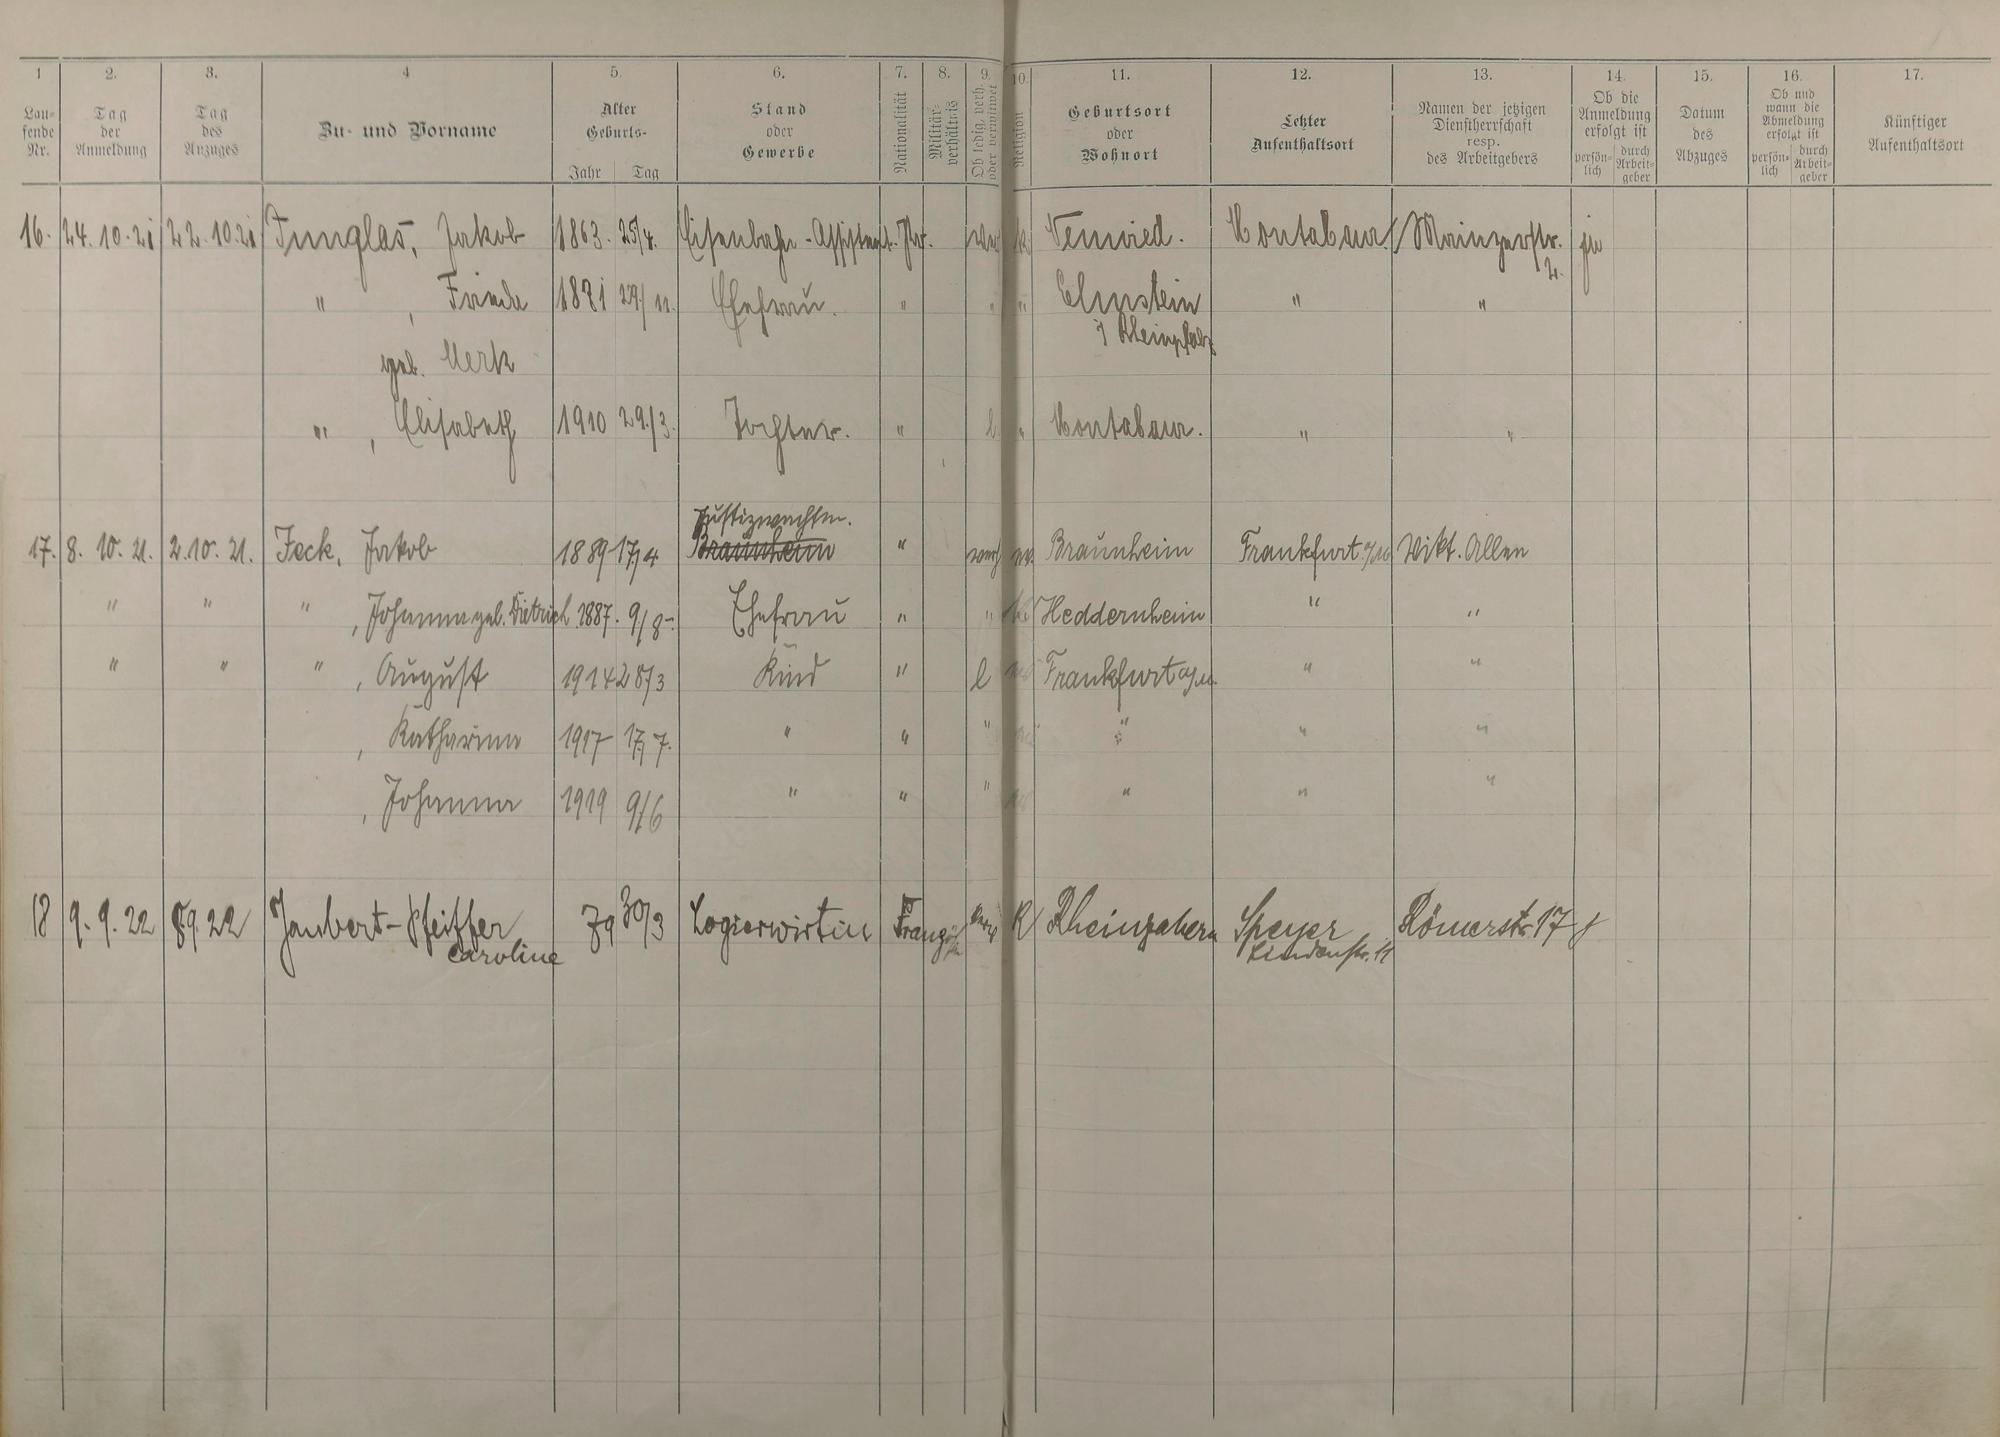 1 2. 3. 4 5. 6. 7. 8. 9. 10. 11. 12. 13. 14. 15. 16. 17.
Laufende Nr. Tag der Anmeldung Tag des Anzuges Zu- und Vorname Alter Geburts- Jahr Tag Stand oder Gewerbe Nationalität Militärverhältnis Ob ledig, verh. oder verwitwet Religion Geburtsort oder Wohnort Letzter Aufenthaltsort Namen der jetzigen Dienstherrschaft resp. des Arbeitgebers Ob die Anmeldung erfolgt ist persönlich durch Arbeitgeber Datum des Abzuges Ob und wann die Abmeldung erfolgt ist persönlich durch Arbeitgeber Künftiger Aufenthaltsort
16. 24. 10. 21 22. 10. 21 Junglas, Jakob 1863. 25/4. Eisenbahn-Assistent Neuwied. Montabaur Mainzerstr. 2. ja
" , Frieda 1871 29/11. Ehefrau. " " " Elmstein " "
i/ Rheinpfalz
geb. Merk
" , Elisabeth 1910 29./3. Tochter. " l " Montabaur. " "
Justizwachtm.
17. 8. 10. 21. 2. 10. 21. Jeck, Jakob 1889 17/4 Braunheim " Braunheim Frankfurt a/M Vikt. Allee
" " " , Johanna geb. Dietrich 1887. 9/8- Ehefrau " " Heddernheim " "
" " " , August 1914 28/3 Kind " l Frankfurt a/M. " "
, Katharina 1917 17/7. " " " " " "
, Johanna 1919 9/6 " " " " " "
18 9. 9. 22 8 9. 22 Jaubert-Pfeiffer 79 30/3 Logierwirtin K Rheinzabern Speyer Römerstr. 17 j
Caroline Lindenstr. 11